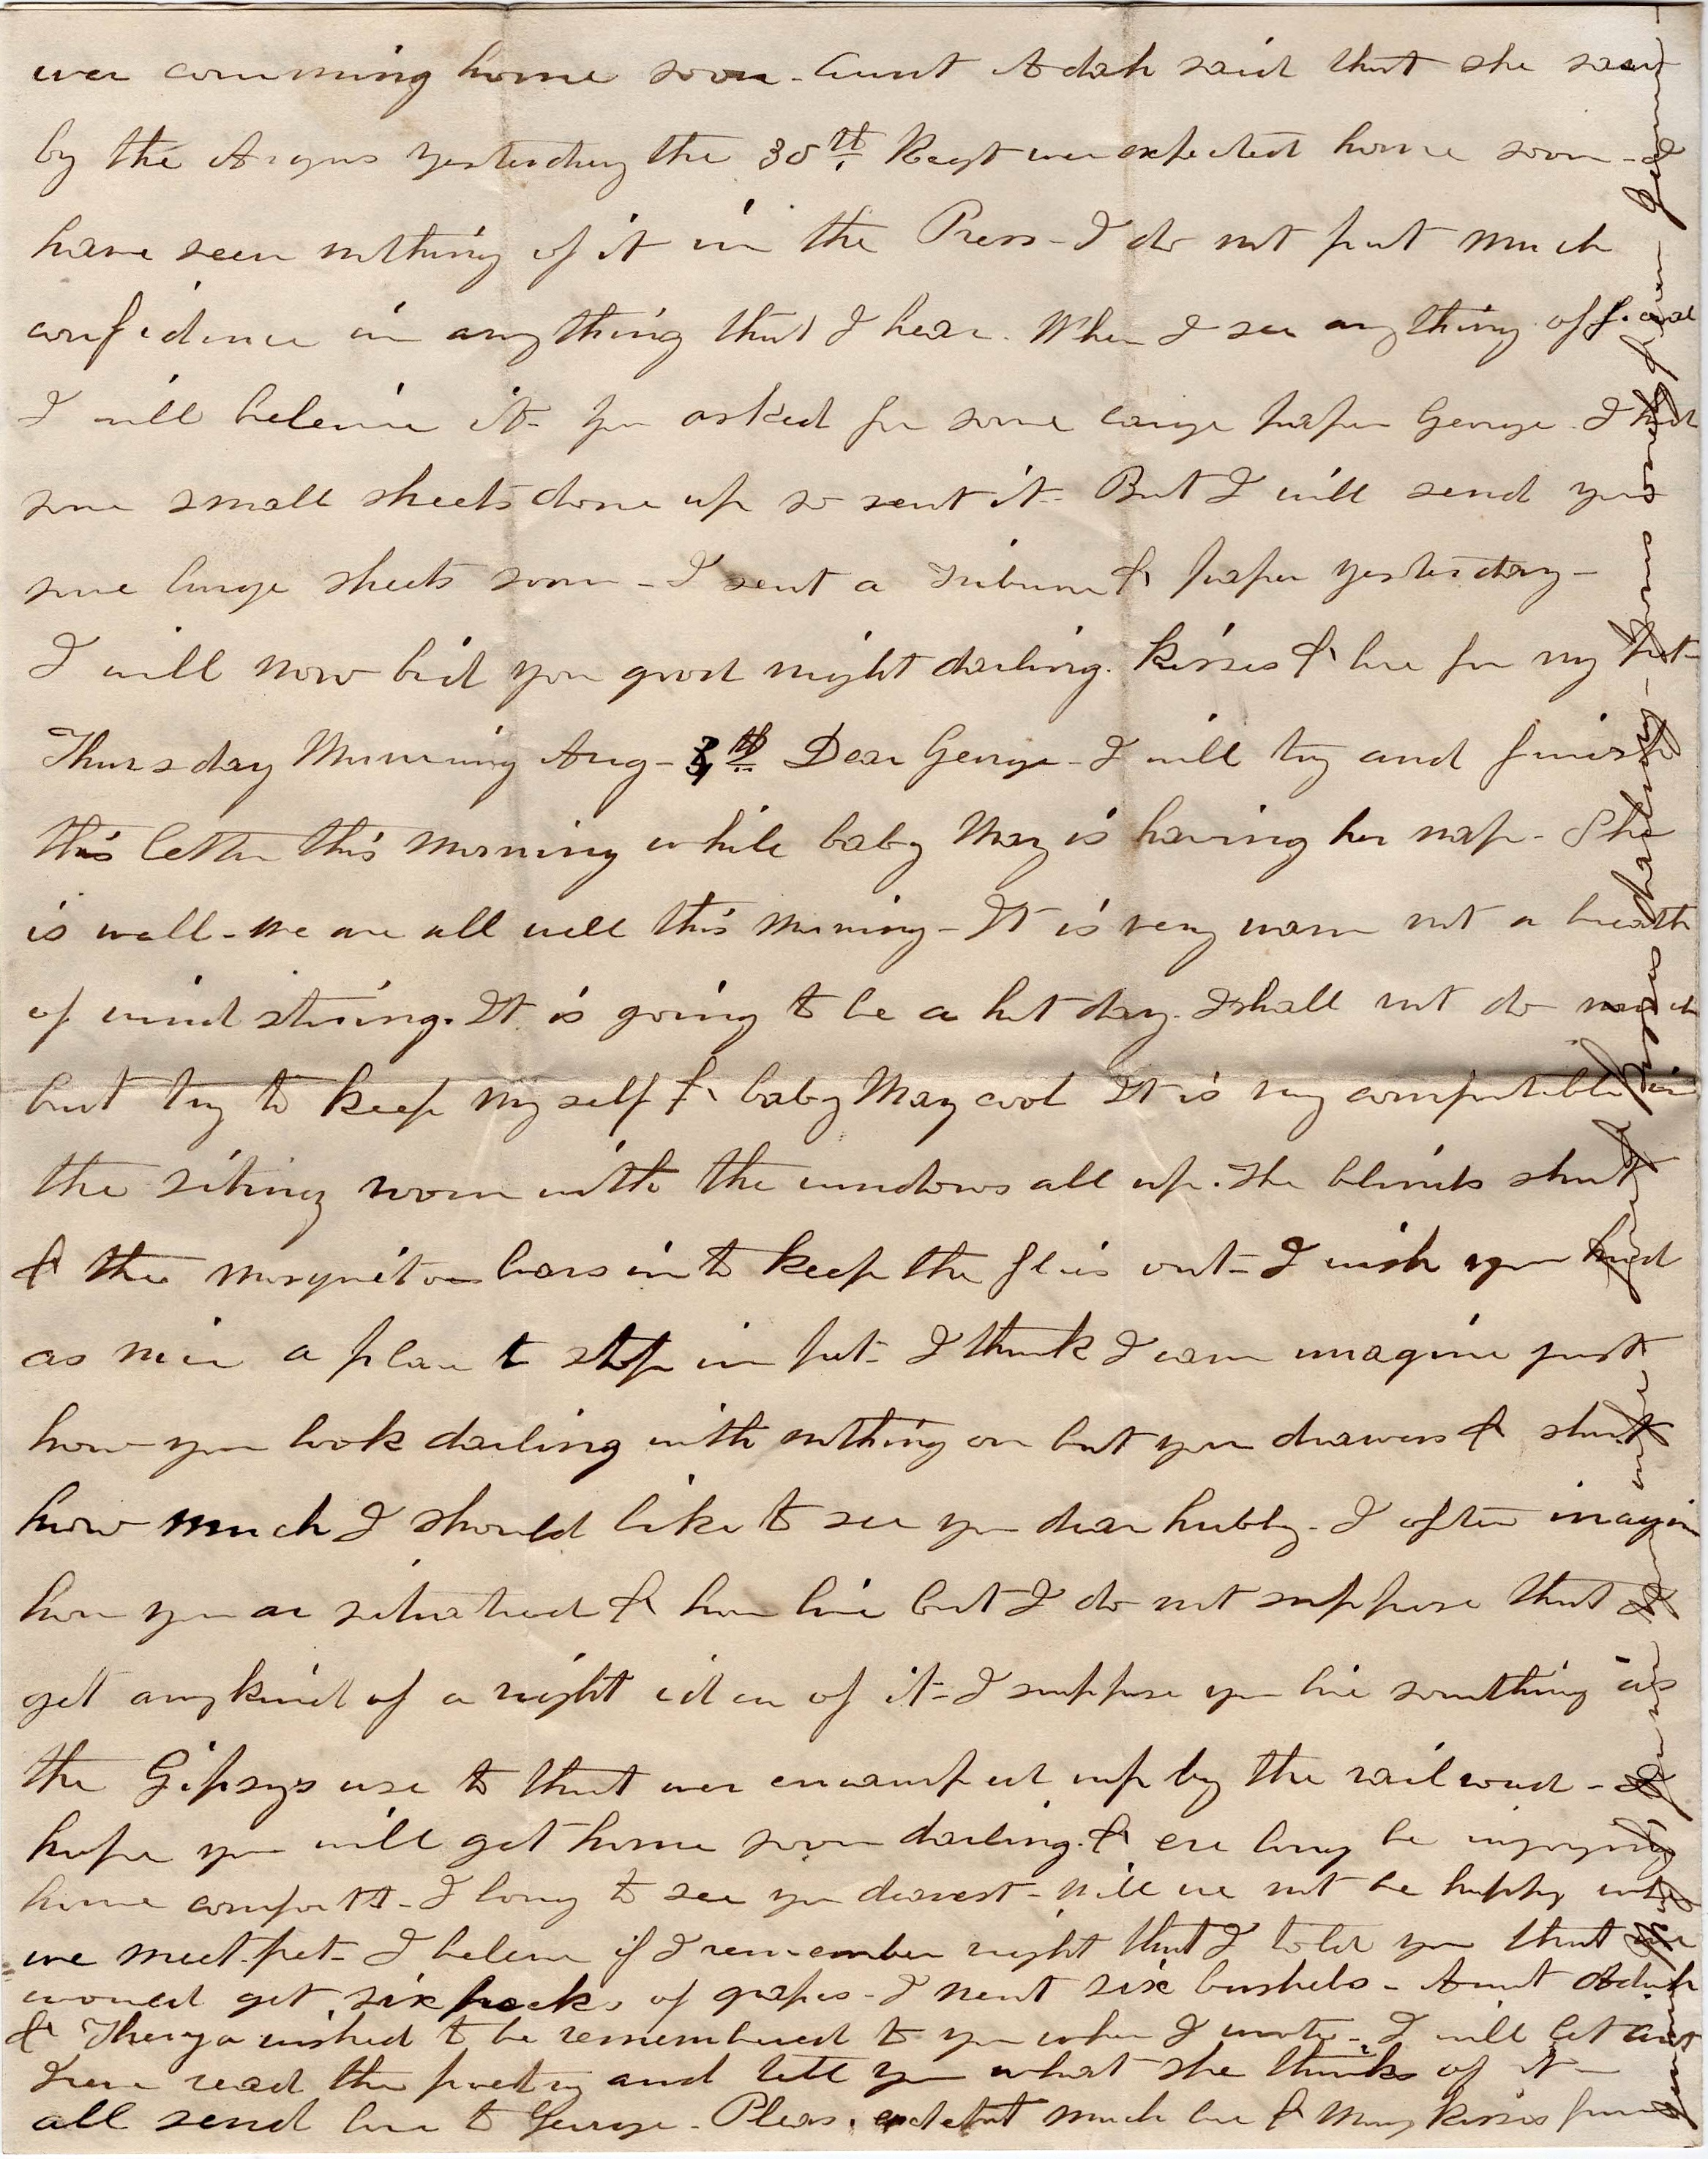 were comming home soon - Aunt Adah said that she saw
by the Argus yesterday the 30th. Regt were expected home soon - I
have seen nothing of it in the Press - I do not put much
confidence in anything that I hear. When I see anything official
I will beleive it - You asked for some large paper George. I had
some small sheets done up so sent it - But I will send you
some large sheets soon - I sent a Tribune & paper yesterday -
I will now bid you good night darling. Kisses & love for my pet -
Thursday Morning Aug - 3th Dear George - I will try and finish
this letter this morning while baby May is having her nap - She
is well - we are all well this morning - It is very warm not a breath
of wind stiring. It is going to be a hot day. I shall not do much
but try to keep my self & baby May cool It is very comfortible in
the siting room with the windows all up. the blinds shut
& the mosquitoe bars in to keep the flies out - I wish you had
as nice a place to stop in pet - I think I can imagine just
how you look darling with nothing on but your drawers & shirt
how much I should like to see you dear hubby - I often imagin
how you are situated & how live but I do not suppose that I
get any kind of a right idea of it - I suppose you live something as
the Gipsys use to that were encamped up by the railroad - I
hope you will get home soon darling. & ere long be injoying
home comforts - I long to see you dearest - Will we not be happy when
we meet pet - I beleve if I remember right that I told you that we
would get six pecks of grapes - I ment six bushels - Aunt Adah
& wished to be remembered to you when I wrote - I will let Aunt
read the poetry and tell you what she thinks of it -
all send love to George - Pleas. much love & many kisses from